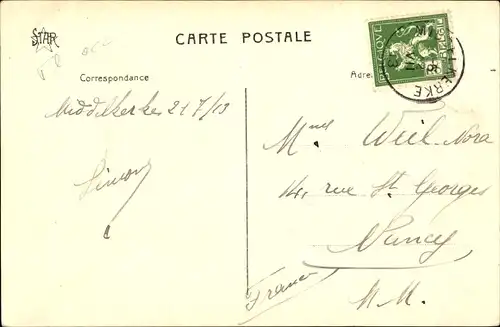 STAR
CARTE POSTALE
Correspondance
Adre
BELGIQUE
MERKE
Middelkerke 21 7/13
Simon
Weil Nora
14, rue St Georges
Nancy
France
M. M.